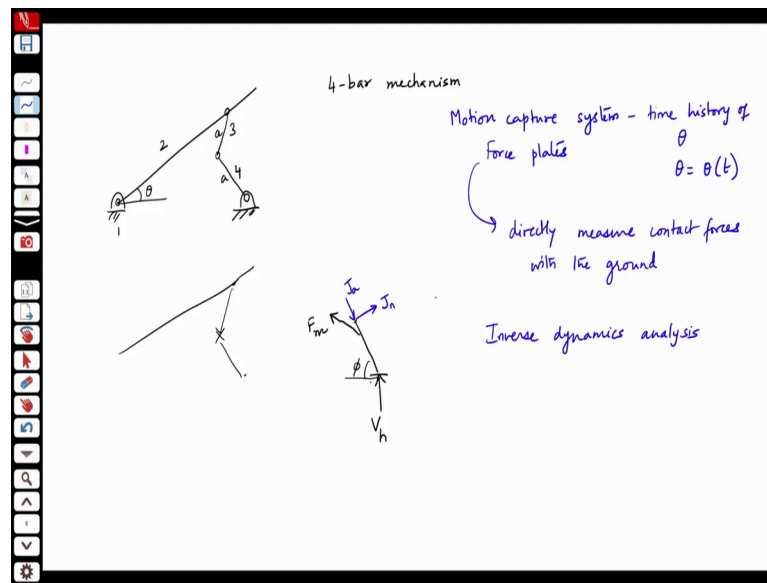 4-bar mechanism
Motion capture system - time history of
Force plates θ
θ = θ(t)
directly measure contact forces
with the ground
Inverse dynamics analysis
2
a 3
a 4
θ
1
Ja
Jn
Fm
φ
Vh